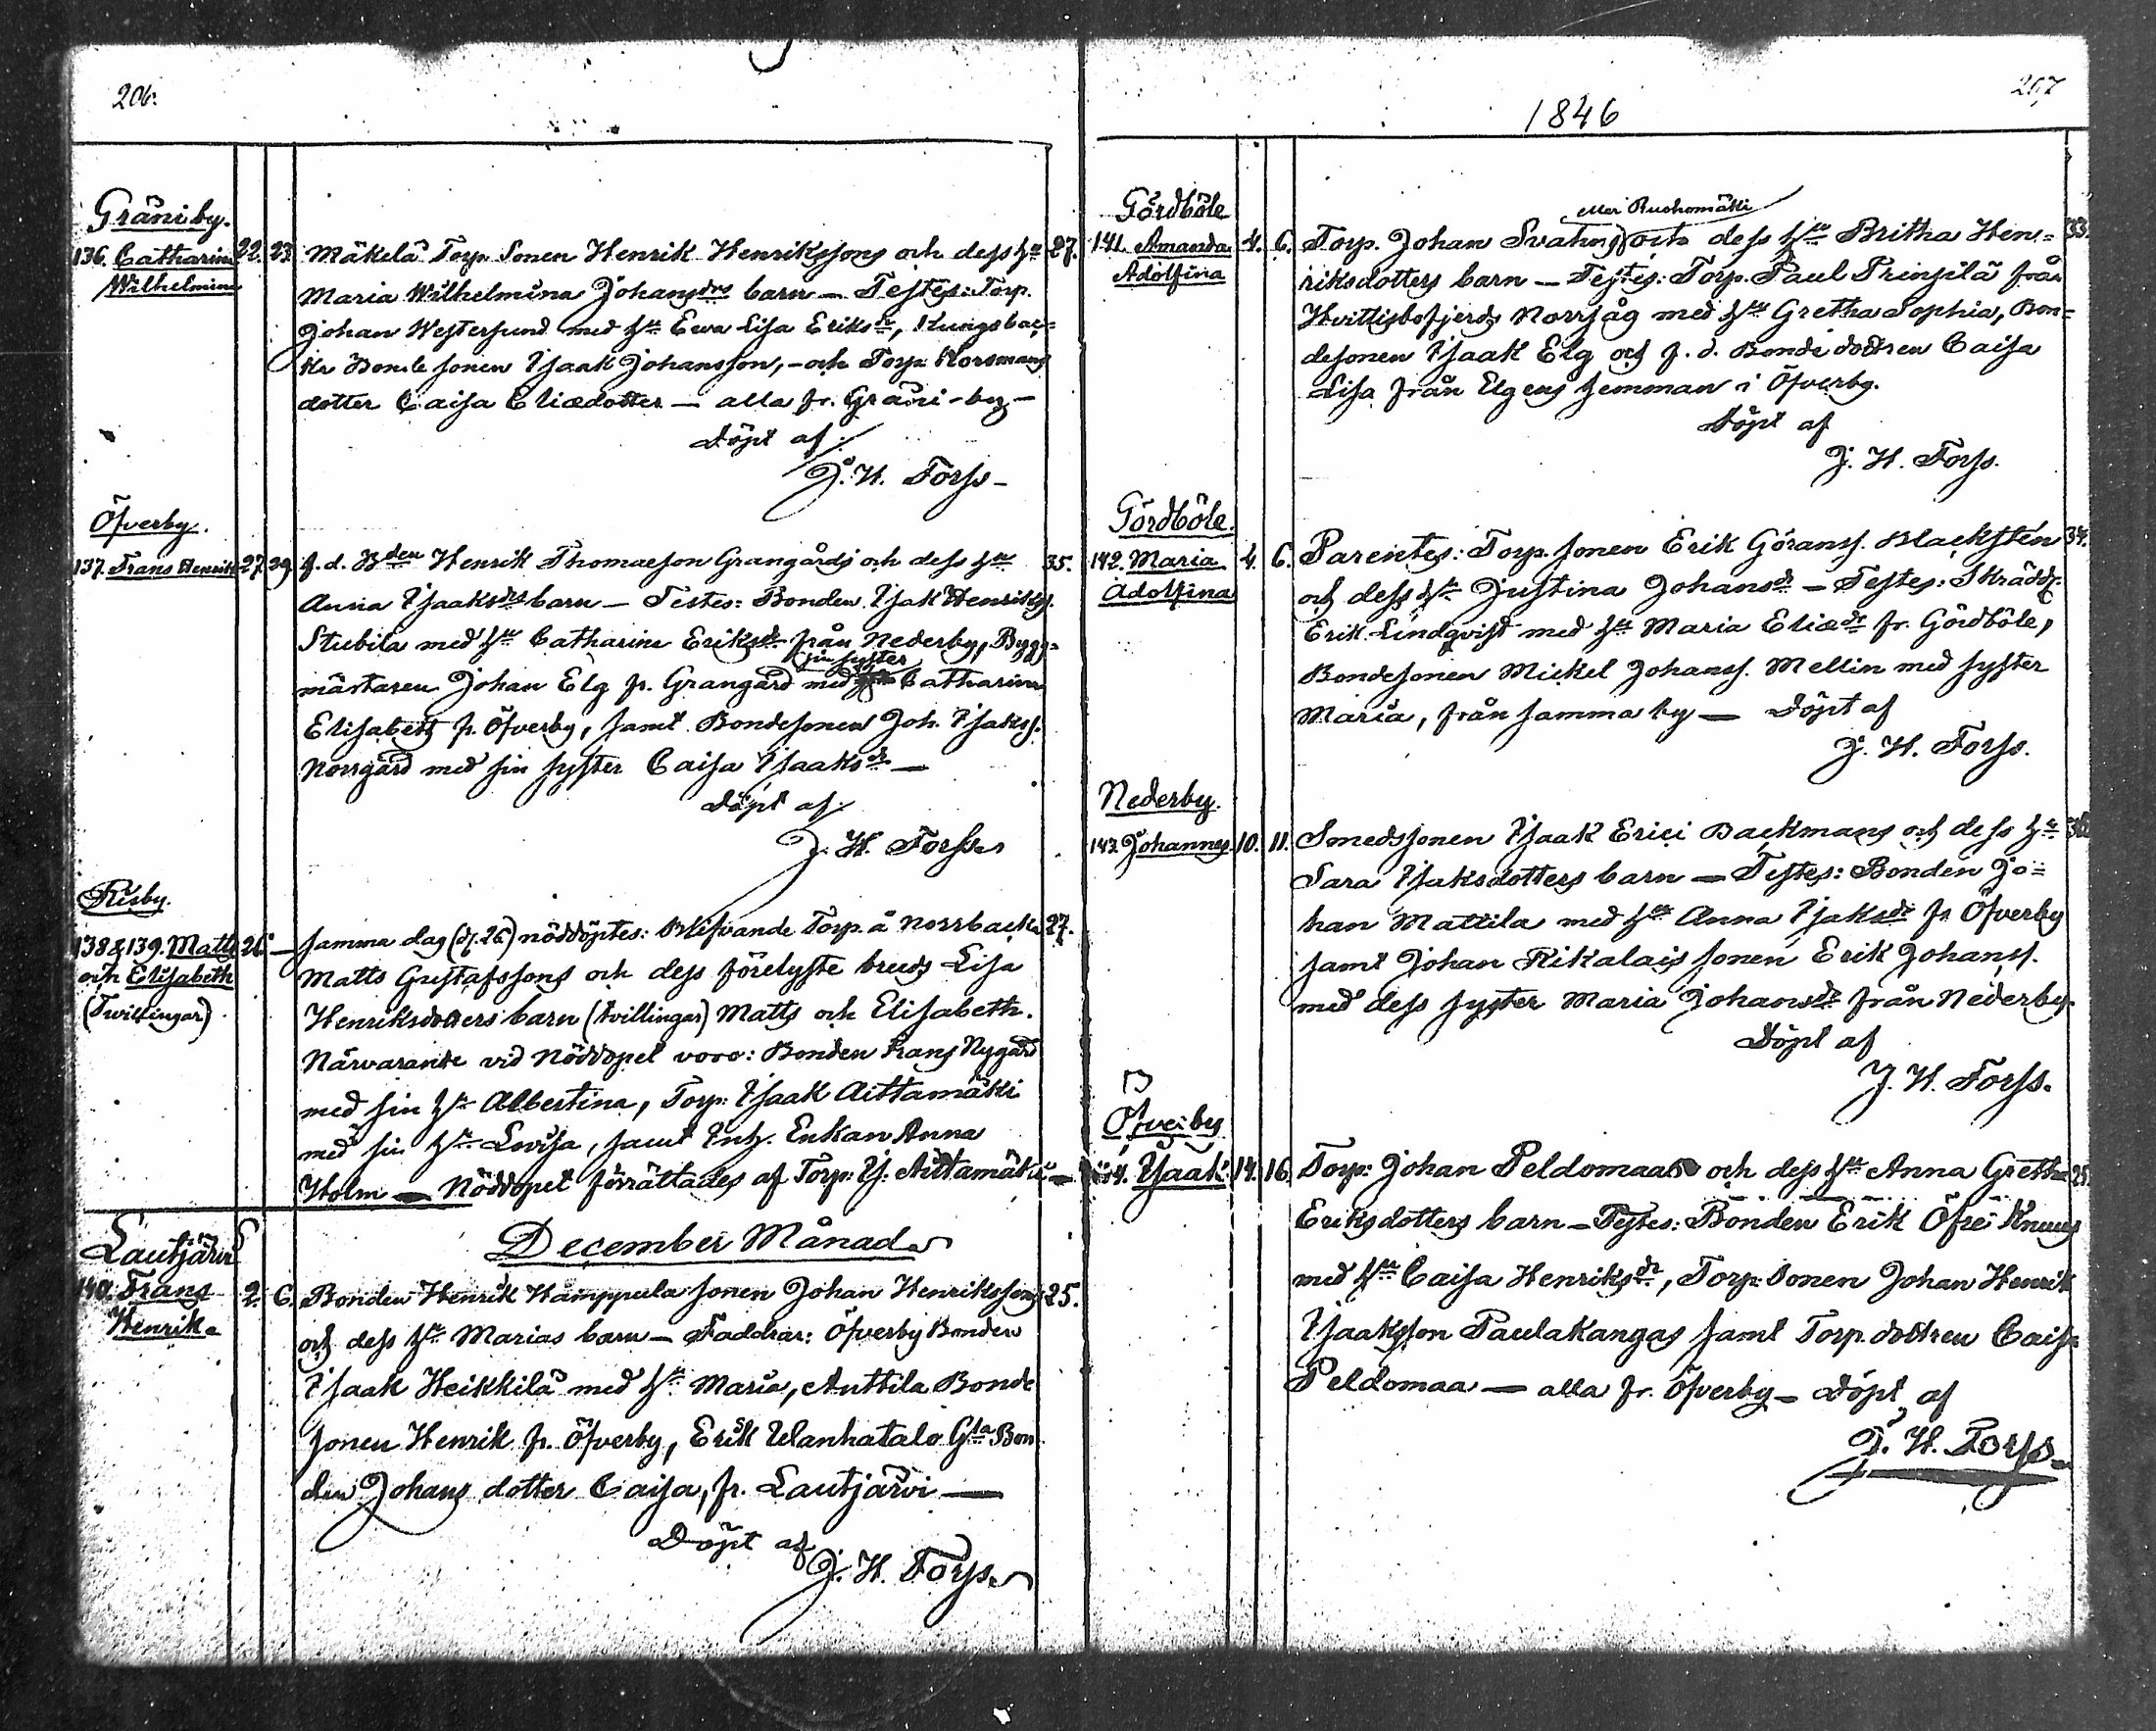 206:
Gräniby.
136. Catharina 22. 23. Mäkelä Torp. Sonen Henrik Henrikssons och dess hu 27.
Wilhelmina Maria Wilhelmina Johansdrs barn — Testes: Torp.
Johan Westersund med hu Ewa Lisa Eriksdr, Kungsbac=
ka Bonde sonen Isaak Johansson, – och Torp. Korsmans
dotter Caisa Eliædotter — alla fr. Gräni-by —
Döpt af:
J. H. Forss –
Öfverby.
137. Frans Henrik 27. 29. f. d. Bden Henrik Thomasson Grangårds och dess hu 35.
Anna Isaaksdrs barn — Testes: Bonden Isak Henrikss.
Stubila med hu Catharina Eriksdr från Nederby, Bygg=
mästaren Johan Elg fr. Grangård med sin syster Catharina
Elisabeth fr. Öfverby, samt Bondesonen Joh. Isakss.
Norrgård med sin syster Caisa Isaaksdr —
Döpt af:
J. H. Forss
Risby.
138 & 139. Matts 26. — samma dag (d. 26) nöddöptes: Blifvande Torp. å Norrbacka 27.
och Elisabeth Matts Gustafssons och dess förelyste bruds Lisa
(Tvillingar) Henriksdotters barn (tvillingar) Matts och Elisabeth.
Närvarande vid Nöddopet voro: Bonden Frans Nygård
med sin hu Albertina, Torp: Isaak Aittamäkki
med sin hu Lovisa, samt Inh. Enkan Anna
Holm — Nöddopet förrättades af Torp: Is: Aittamäkki —
December Månad
Lautjärvi
140. Frans 2. 6. Bonden Henrik Hamppula sonen Johan Henrikssons 25.
Henrik. och dess hu Marias barn — Faddrar: Öfverby Bonden
Isaak Heikkilä med hu Maria, Anttila Bonde
sonen Henrik fr. Öfverby, Erik Wanhatalo Gla Bon
den Johans dotter Caisa, fr. Lautjärvi —
Döpt af
J. H. Forss
207
1846
Gördböle
eller Ruskomäki
141. Amanda 4. 6. Torp. Johan Svahns och dess hu Britha Hen= 33.
Adolfina riksdotters barn — Testes: Torp. Paul Prinsilä från
Hvittisbofjerds Norrsåg med hu Gretha Sophia, Bon=
desonen Isaak Elg och f. d. Bonde dottren Caisa
Lisa från Elgens hemman i Öfverby.
Döpt af
J. H. Forss.
Gördböle.
142. Maria 4. 6. Parentes: Torp. sonen Erik Göranss. Blacksten 34.
Adolfina och dess hu Justina Johansdr — Testes: Skrädd.
Erik Lindqvist med hu Maria Eliædr fr. Gördböle,
Bondesonen Mickel Johanss. Mellin med syster
Maria, från samma by — Döpt af
J. H. Forss.
Nederby.
143. Johannes. 10. 11. Smedssonen Isaak Erici Backmans och dess hu 36.
Sara Isaksdotters barn — Testes: Bonden Jo=
han Mattila med hu Anna Isaksdr fr Öfverby
samt Johan Rikalais sonen Erik Johanss.
med dess syster Maria Johansdr från Nederby.
Döpt af
J. H. Forss.
Öfverby
144. Isaak. 14. 16. Torp: Johan Peldomaas och dess hu Anna Gretha 25.
Eriksdotters barn — Testes: Bonden Erik Öfre Knuus
med hu Caisa Henriksdr, Torp: Sonen Johan Henrik
Isaaksson Paulakangas samt Torp. dottren Caisa
Peldomaa — alla fr. Öfverby — Döpt af
J. H. Forss